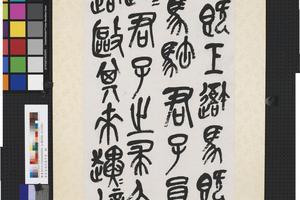 既工馬既
馬君子員
君子之求
敺其來趩